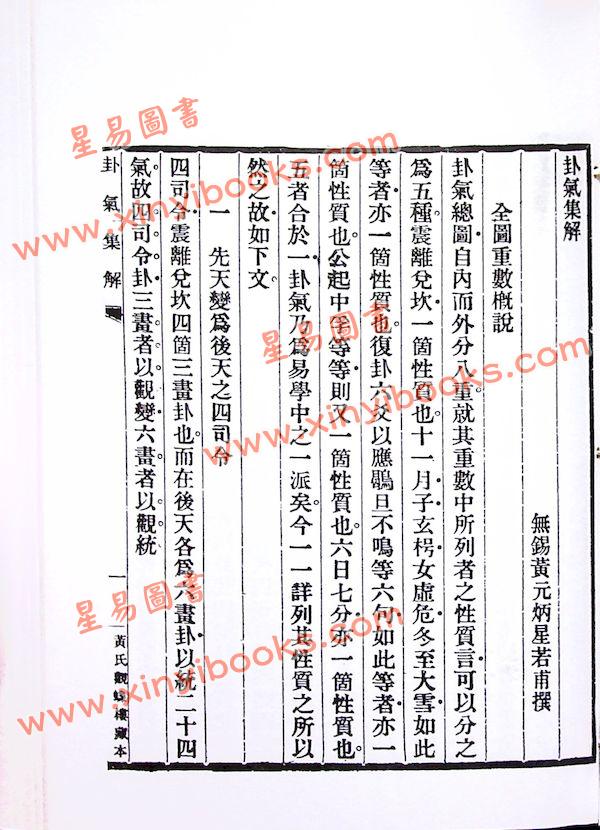 卦氣集解
無錫黃元炳星若甫撰
全圖重數槪說
卦氣總圖自內而外分八重就其重數中所列者之性質言可以分之
爲五種震離兌坎一箇性質也十一月子玄枵女虛危冬至大雪如此
等者亦一箇性質也復卦六爻以應鶡旦不鳴等六句如此等者亦一
箇性質也公起中孚等等則又一箇性質也六日七分亦一箇性質也
五者合於一卦氣乃爲易學中之一派矣今一一詳列其性質之所以
然之故如下文
一 先天變爲後天之四司令
四司令震離兌坎四箇三畫卦也而在後天各爲六畫卦以統二十四
氣故四司令卦三畫者以觀變六畫者以觀統
卦氣集解
一
黃氏觀蝶樓藏本
星易圖書
www.xinyibooks.com
星易圖書
www.xinyibooks.com
星易圖書
www.xinyibooks.com